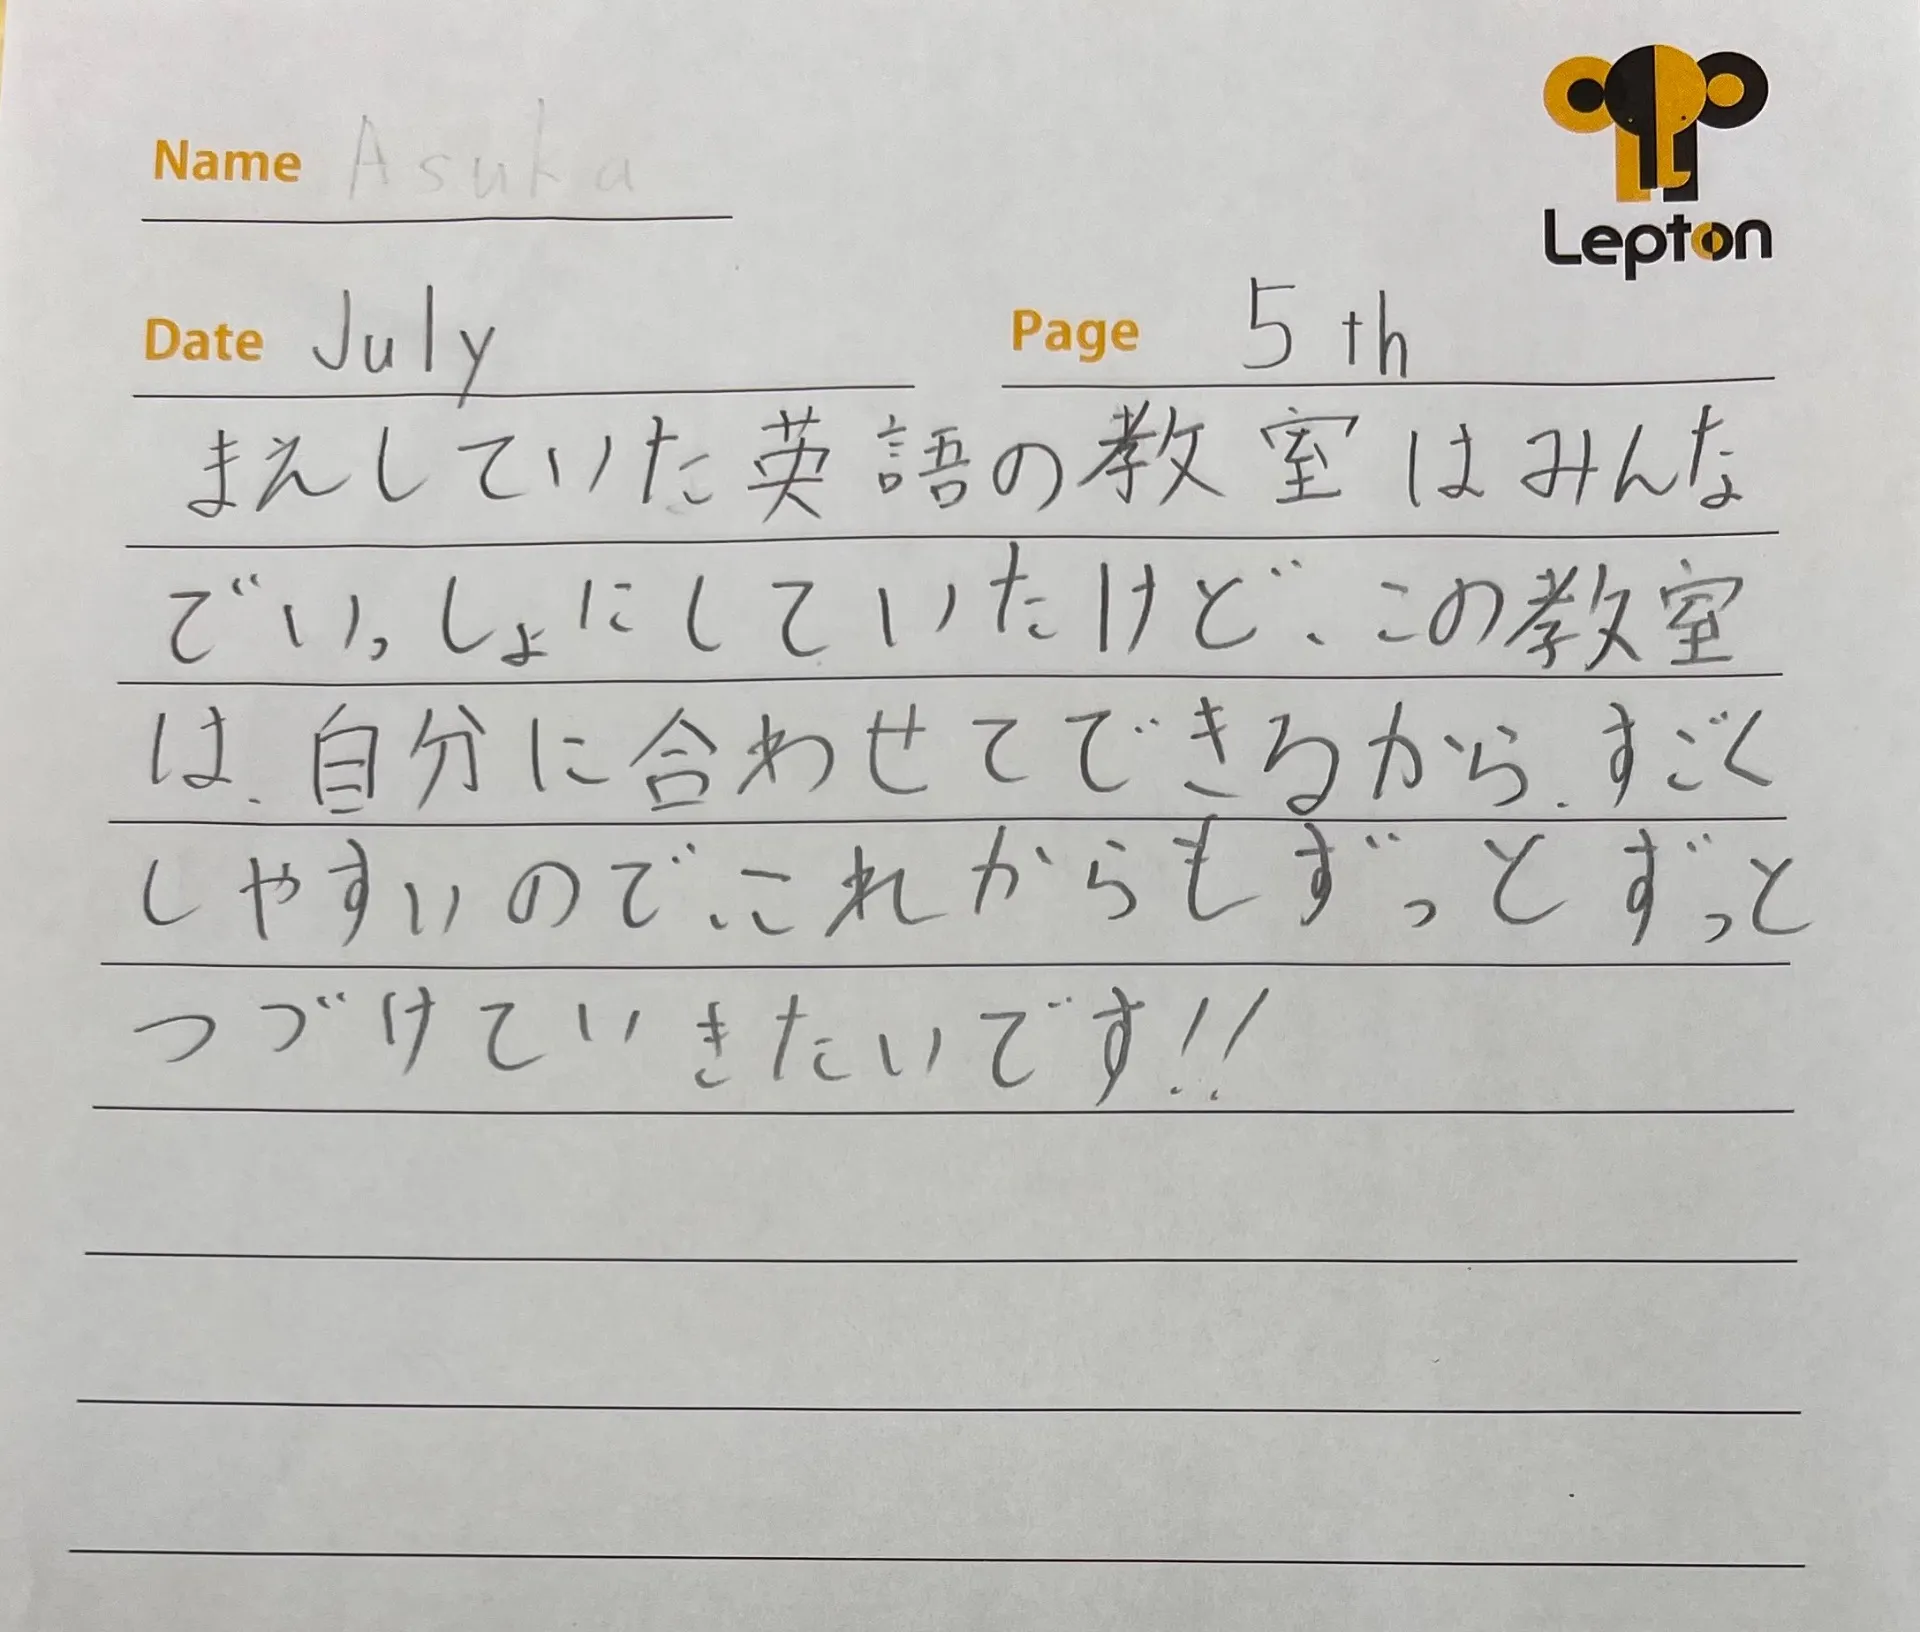 Lepton
Name Asuka
Date July Page 5th
まえしていた英語の教室はみんな
でいっしょにしていたけど、この教室
は、自分に合わせてできるから、すごく
しやすいので、これからもずっとずっと
つづけていきたいです!!